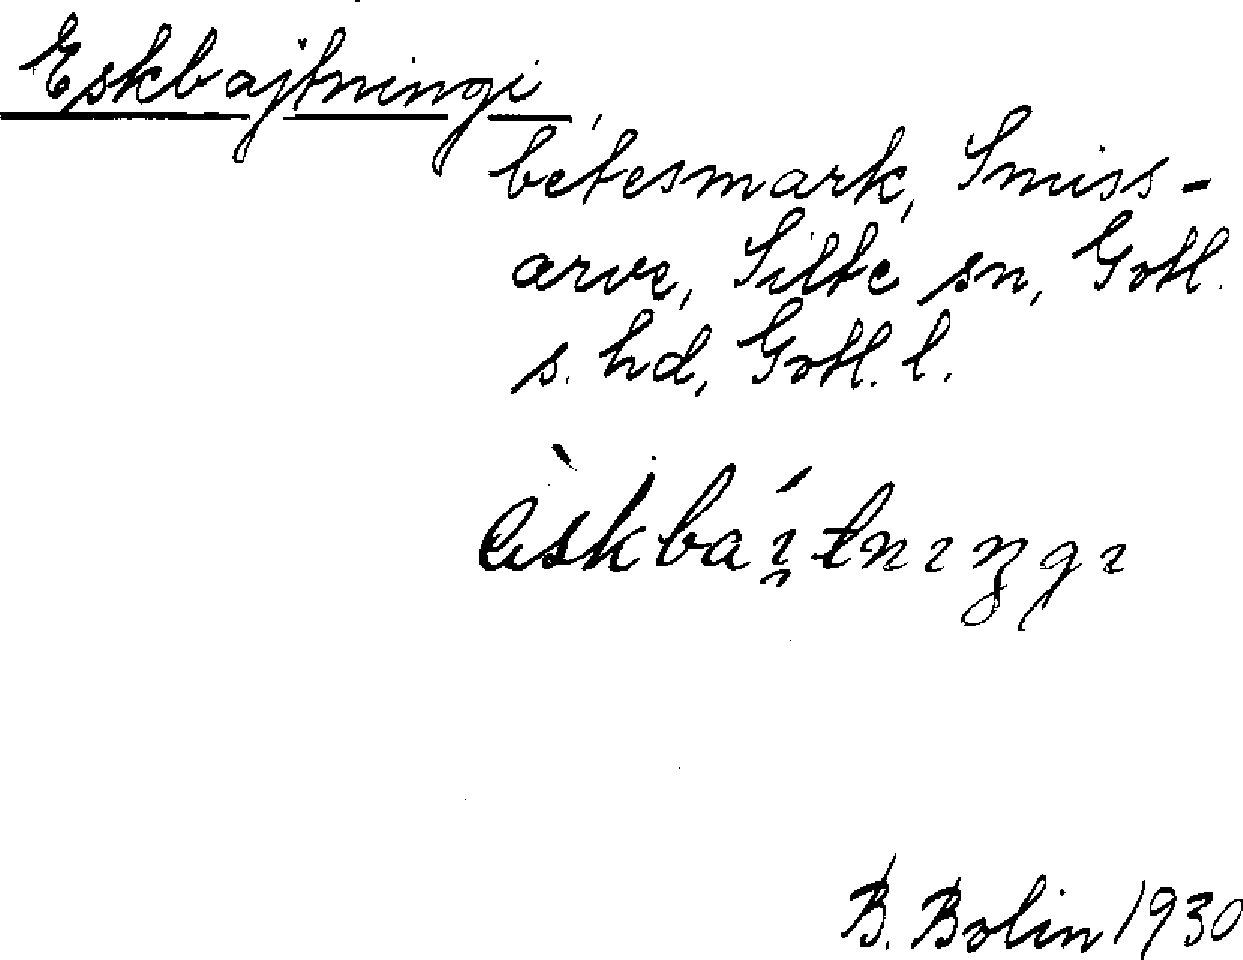 Eskbajtningi,
betesmark, Smiss-
arve, Silte sn, Gotl.
s. hd, Gotl. l.
èskbaı̯́tnıŋgı
B. Bolin 1930